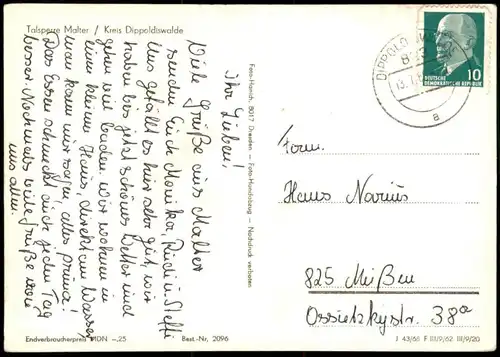 Talsperre Malter / Kreis Dippoldiswalde
Ihr Lieben!
Viele Grüße aus Malter
senden Euch Monika, Rudi u. Steffi
Uns gefällt es hier sehr gut, wir
haben bis jetzt schönes Wetter und
gehen viel baden. Wir wohnen in
einem kleinen Haus, direkt am Wasser
man kann nur sagen, alles prima!
Das Essen schmeckt auch jeden Tag
besser. Nochmals viele Grüße von
uns allen.
Endverbraucherpreis MDN –,25
Best.-Nr. 2096
Foto-Hanich, 8017 Dresden – Foto-Handabzug – Nachdruck verboten
DIPPOLDISWALDE
a
DEUTSCHE
DEMOKRATISCHE REPUBLIK
10
Fam.
Hans
825 Meißen
Ossietzkystr. 38a
J 43/68 F III/9/62 III/9/20